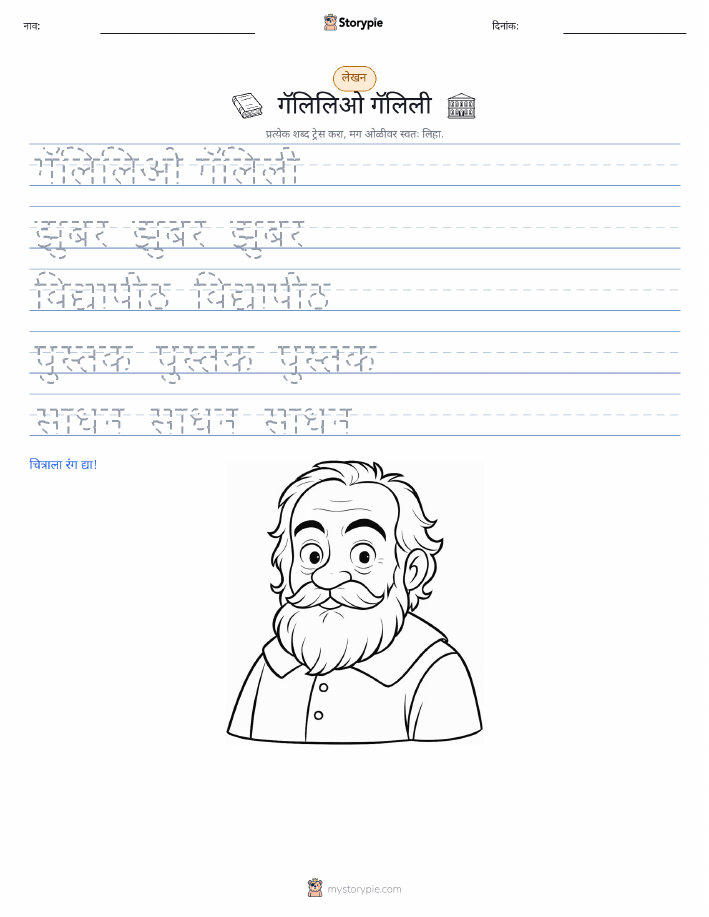 नाव:
Storypie
दिनांक:
लेखन
गॅलिलिओ गॅलिली
प्रत्येक शब्द ट्रेस करा, मग ओळीवर स्वतः लिहा.
गॅलिलिओ गॅलिली
झुंबर झुंबर झुंबर
विद्यापीठ विद्यापीठ
पुस्तक पुस्तक पुस्तक
साधन साधन साधन
चित्राला रंग द्या!
mystorypie.com